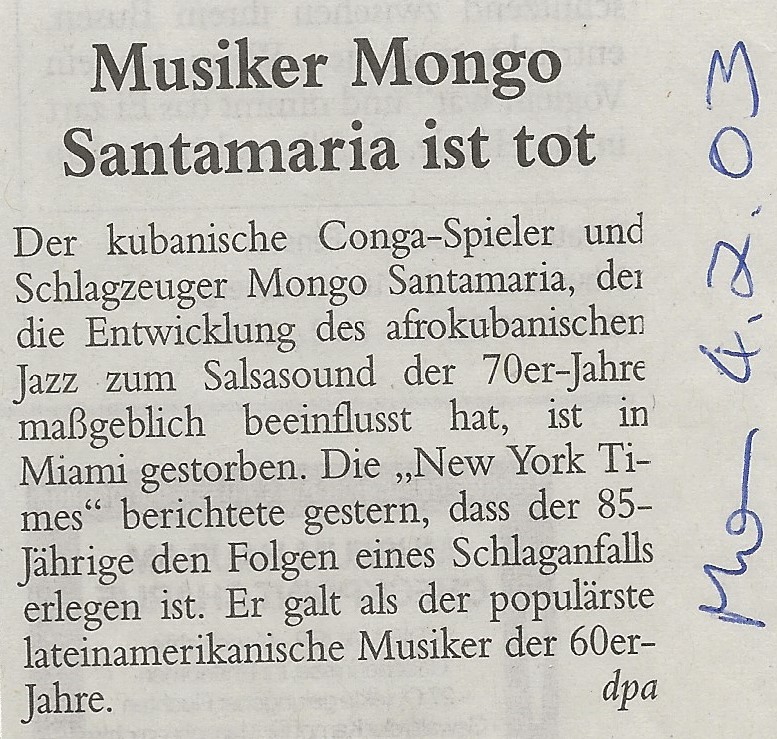 Musiker Mongo
Santamaria ist tot
Der kubanische Conga-Spieler und
Schlagzeuger Mongo Santamaria, der
die Entwicklung des afrokubanischen
Jazz zum Salsasound der 70er-Jahre
maßgeblich beeinflusst hat, ist in
Miami gestorben. Die „New York Ti-
mes“ berichtete gestern, dass der 85-
Jährige den Folgen eines Schlaganfalls
erlegen ist. Er galt als der populärste
lateinamerikanische Musiker der 60er-
Jahre. dpa
4.2.03